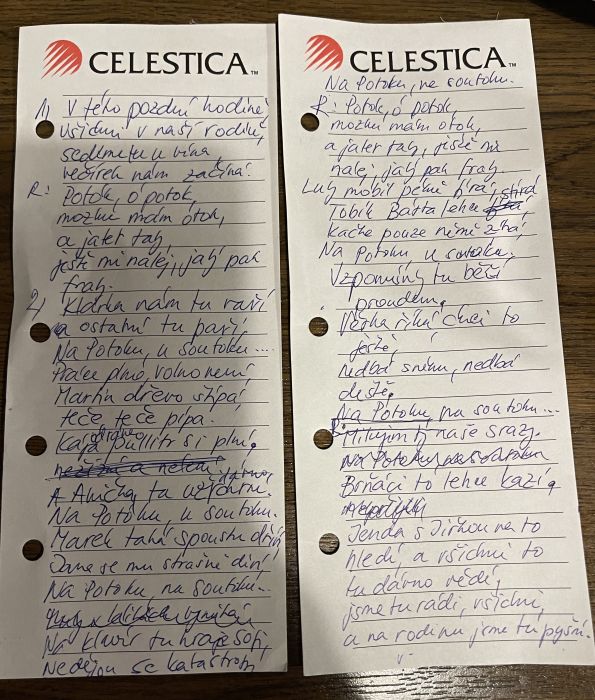 CELESTICA™
1, V této pozdní hodině
všichni v naší rodině,
sedkmetu u vína,
večírek nám začíná.
R: Potok, ó potok,
mozku mám otok,
a jater tah,
ještě mi nalej, jaký pak
frah.
2, Klárka nám tu vaří
a ostatní tu paří,
Na Potoku, u soutoku...
Práce plno, volno není
Martin dřevo štípá,
teče teče pípa.
Kája půllitr si plní,
A Anička tu
Na Potoku, u soutoku.
Marek taká spoustu dříví,
Zane se mu strašně diví,
Na Potoku, na soutoku...
Na klavír tu hraje Sofi,
Nedějou se katastrofy,
CELESTICA™
Na Potoku, na soutoku.
R: Potok, ó potok,
mozku mám otok,
a jater tah, ještě mi
nalej, jaký pak frah.
Luky mobil pěkně svírá,
Tobík Bárta lehce
Kačke pouze němě zírá,
Na Potoku u soutoku.
Vzpomínky tu běží
proudem,
říká chci to
ještě,
nedbá sněhu, nedbá
deště.
Na Potoku, na soutoku...
Milujem ty naše srazy.
Na Potoku, na soutoku
Brňáci to lehce kazí,
Jenda s Jirkou na to
hledí, a všichni to
tu dávno vědí,
jsme tu rádi, všichni,
a na rodinu jsme tu pyšní.